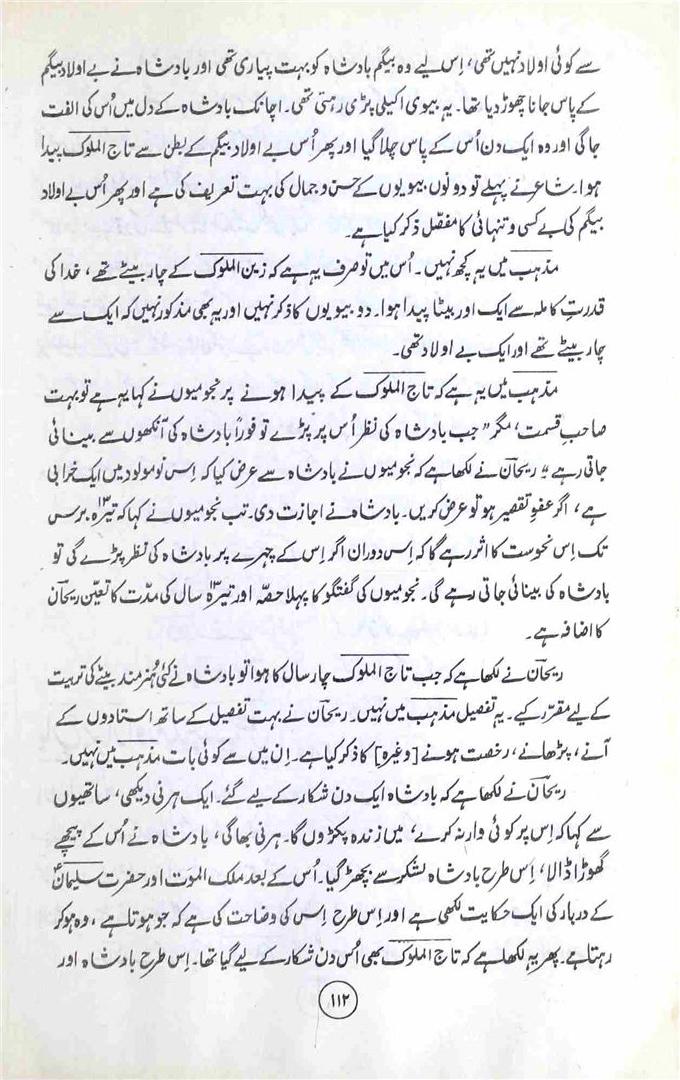 سے کوئی اولاد نہیں تھی، اِس لیے وہ بیگم بادشاہ کو بہت پیاری تھی اور بادشاہ نے بے اولاد بیگم
کے پاس جانا چھوڑ دیا تھا۔ یہ بیوی اکیلی پڑی رہتی تھی۔ اچانک بادشاہ کے دل میں اُس کی الفت
جاگی اور وہ ایک دن اُس کے پاس چلا گیا اور پھر اُس بے اولاد بیگم کے بطن سے تاج الملوک پیدا
ہوا۔ شاعر نے پہلے تو دونوں بیویوں کے حسن و جمال کی بہت تعریف کی ہے اور پھر اُس بے اولاد
بیگم کی بے کسی و تنہائی کا مفصّل ذکر کیا ہے۔
مذہب میں یہ کچھ نہیں۔ اُس میں تو صرف یہ ہے کہ زین الملوک کے چار بیٹے تھے، خدا کی
قدرتِ کاملہ سے ایک اور بیٹا پیدا ہوا۔ دو بیویوں کا ذکر نہیں اور یہ بھی مذکور نہیں کہ ایک سے
چار بیٹے تھے اور ایک بے اولاد تھی۔
مذہب میں یہ ہے کہ تاج الملوک کے پیدا ہونے پر نجومیوں نے کہا یہ ہے تو بہت
صاحبِ قسمت، مگر "جب بادشاہ کی نظر اُس پر پڑے تو فوراً بادشاہ کی آنکھوں سے بینائی
جاتی رہے"۔ ریحاںؔ نے لکھا ہے کہ نجومیوں نے بادشاہ سے عرض کیا کہ اِس نومولود میں ایک خرابی
ہے، اگر عفوِ تقصیر ہو تو عرض کریں۔ بادشاہ نے اجازت دی۔ تب نجومیوں نے کہا کہ تیرہ ۱۳ برس
تک اِس نحوست کا اثر رہے گا کہ اِس دوران اگر اِس کے چہرے پر بادشاہ کی نظر پڑے گی تو
بادشاہ کی بینائی جاتی رہے گی۔ نجومیوں کی گفتگو کا پہلا حصّہ اور تیرہ ۱۳ سال کی مدّت کا تعیّن ریحاںؔ
کا اضافہ ہے۔
ریحاںؔ نے لکھا ہے کہ جب تاج الملوک چار سال کا ہوا تو بادشاہ نے کئی ہُنرمند بیٹے کی تربیت
کے لیے مقرّر کیے۔ یہ تفصیل مذہب میں نہیں۔ ریحاںؔ نے بہت تفصیل کے ساتھ استادوں کے
آنے، پڑھانے، رخصت ہونے [وغیرہ] کا ذکر کیا ہے۔ اِن میں سے کوئی بات مذہب میں نہیں۔
ریحاںؔ نے لکھا ہے کہ بادشاہ ایک دن شکار کے لیے گئے۔ ایک ہرنی دیکھی، ساتھیوں
سے کہا کہ اِس پر کوئی وار نہ کرے، میں زندہ پکڑوں گا۔ ہرنی بھاگی، بادشاہ نے اُس کے پیچھے
گھوڑا ڈالا، اِس طرح بادشاہ لشکر سے بچھڑ گیا۔ اُس کے بعد ملک الموت اور حضرت سلیمانؑ
کے دربار کی ایک حکایت لکھی ہے اور اِس طرح اِس کی وضاحت کی ہے کہ جو ہوتا ہے، وہ ہو کر
رہتا ہے۔ پھر یہ لکھا ہے کہ تاج الملوک بھی اُس دن شکار کے لیے گیا تھا۔ اِس طرح بادشاہ اور
۱۱۲